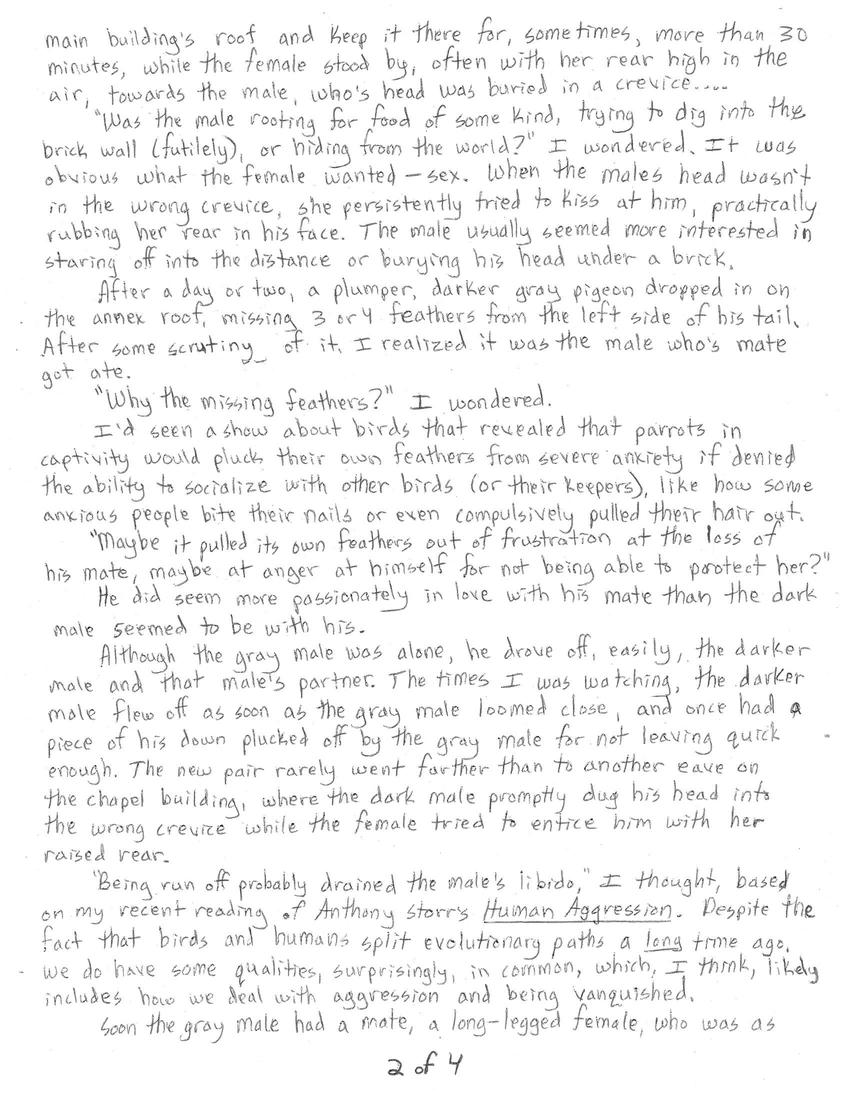 main building's roof and keep it there for, sometimes, more than 30
minutes, while the female stood by, often with her rear high in the
air, towards the male, who's head was buried in a crevice....
"Was the male rooting for food of some kind, trying to dig into the
brick wall (futilely), or hiding from the world?" I wondered. It was
obvious what the female wanted – sex. When the males head wasn't
in the wrong crevice, she persistently tried to kiss at him, practically
rubbing her rear in his face. The male usually seemed more interested in
staring off into the distance or burying his head under a brick.
After a day or two, a plumper, darker gray pigeon dropped in on
the annex roof, missing 3 or 4 feathers from the left side of his tail.
After some scrutiny of it, I realized it was the male who's mate
got ate.
"Why the missing feathers?" I wondered.
I'd seen a show about birds that revealed that parrots in
captivity would pluck their own feathers from severe anxiety if denied
the ability to socialize with other birds (or their keepers), like how some
anxious people bite their nails or even compulsively pulled their hair out.
"Maybe it pulled its own feathers out of frustration at the loss of
his mate, maybe at anger at himself for not being able to protect her?"
He did seem more passionately in love with his mate than the dark
male seemed to be with his.
Although the gray male was alone, he drove off, easily, the darker
male and that male's partner. The times I was watching, the darker
male flew off as soon as the gray male loomed close, and once had a
piece of his down plucked off by the gray male for not leaving quick
enough. The new pair rarely went farther than to another eave on
the chapel building, where the dark male promptly dug his head into
the wrong crevice while the female tried to entice him with her
raised rear.
"Being run off probably drained the male's libido," I thought, based
on my recent reading of Anthony Storr's Human Aggression. Despite the
fact that birds and humans split evolutionary paths a long time ago,
we do have some qualities, surprisingly, in common, which, I think, likely
includes how we deal with aggression and being vanquished.
Soon the gray male had a mate, a long-legged female, who was as
2 of 4